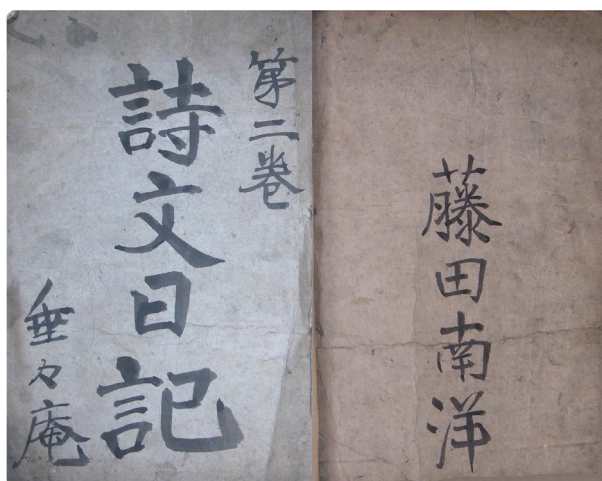 藤田南洋
第二巻
詩文日記
垂々庵